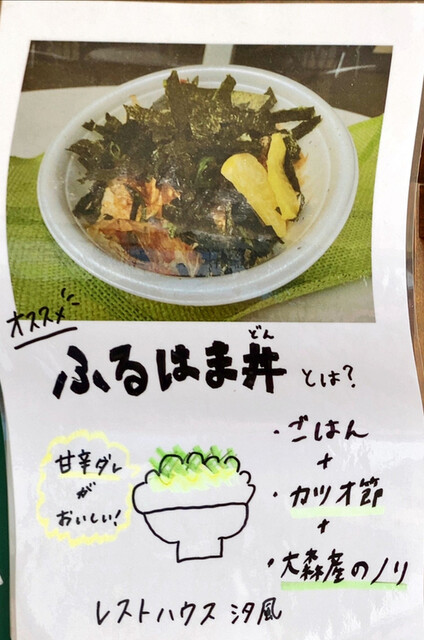 オススメ
どん
ふるはま丼とは?
・ごはん
+
・カツオ節
+
・大森産のノリ
甘辛ダレ
が
おいしい!
レストハウス汐風